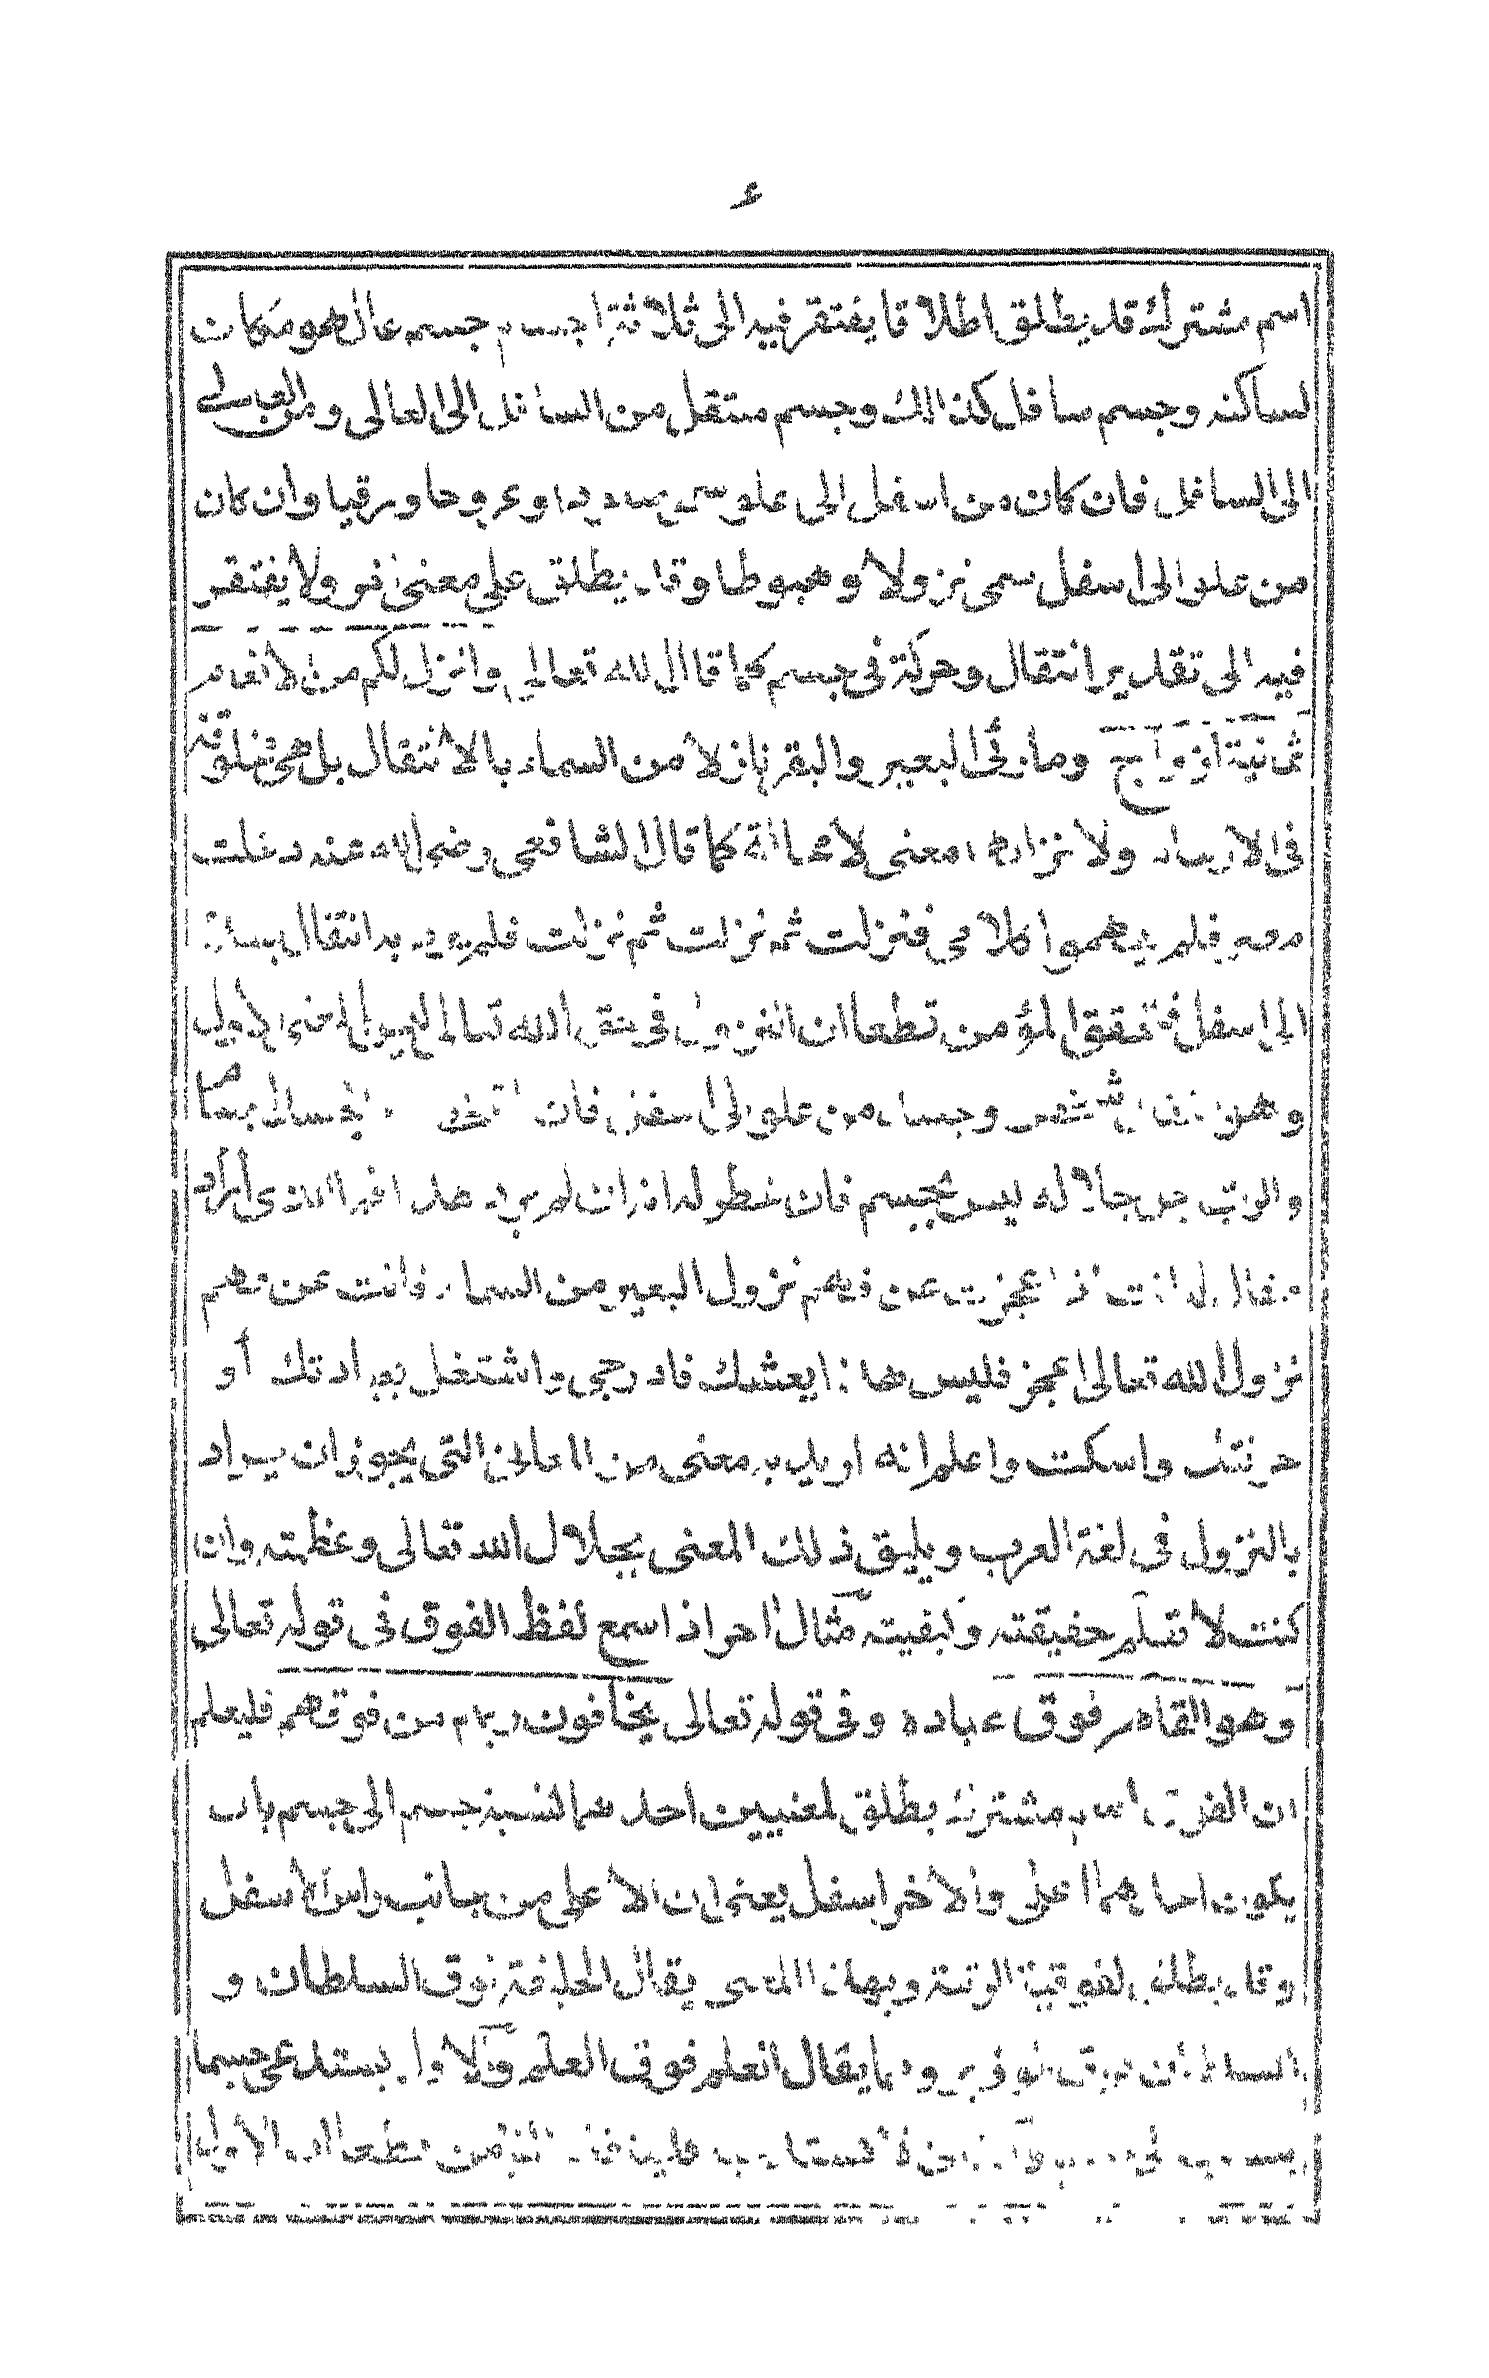 ء
اسم مشترك قد يطلق اطلاقا يفتقر فيه الى ثلاثة اجسام جسم عال هو مكان
لساكنه وجسم سافل كذالك وجسم منتقل من السافل الى العالى ومن العالى
الى السافل فان كان من اسفل الى علو سمى صعودا وعروجا ورقيا وان كان
من علو الى اسفل سمى نزولا وهبوطا وقد يطلق على معنى اخر ولا يفتقر
فيه الى تقدير انتقال وحركة فى جسم كما قال الله تعالى وانزل لكم من الانعام
ثمانية ازواج وما رئى البعير والبقر نازلا من السماء بالانتقال بل هى مخلوقة
فى الارحام ولانزالها معنى لا محالة كما قال الشافعى رضى الله عنه دخلت
مصر فلم يفهموا كلامى فنزلت ثم نزلت ثم نزلت فلم يرد به انتقال جسده
الى اسفل فتحقق المؤمن قطعا ان النزول فى حق الله تعالى ليس بالمعنى الاول
وهو شخص وجسد من علو الى اسفل فان
والرب جل جلاله ليس بجسم فان خطر له انه ان لم يرد هذا فما الذى اراد
فيقال له انت اذا عجزت عن فهم نزول البعير من السماء فانت عن فهم
نزول الله تعالى اعجز فليس هذا بعشك فادرجى واشتغل بعبادتك أو
حرفتك واسكت واعلم انه اريد به معنى من المعانى التى يجوز ان يراد
بالنزول فى لغة العرب ويليق ذلك المعنى بجلال الله تعالى وعظمته وان
كنت لا تعلم حقيقته وكيفيته مثال اخر اذا سمع لفظ الفوق فى قوله تعالى
وهو القاهر فوق عباده وفى قوله تعالى يخافون ربهم من فوقهم فليعلم
ان الفوق اسم مشترك يطلق لمعنيين احدهما نسبة جسم الى جسم بان
يكون احدهما اعلى والاخر اسفل يعنى ان الاعلى من جانب راس الاسفل
وقد يطلق لفوقية الرتبة وبهذا المعنى يقال الخليفة فوق السلطان و
السلطان فوق الوزير وكما يقال العلم فوق العلم والاول يستدعى جسما